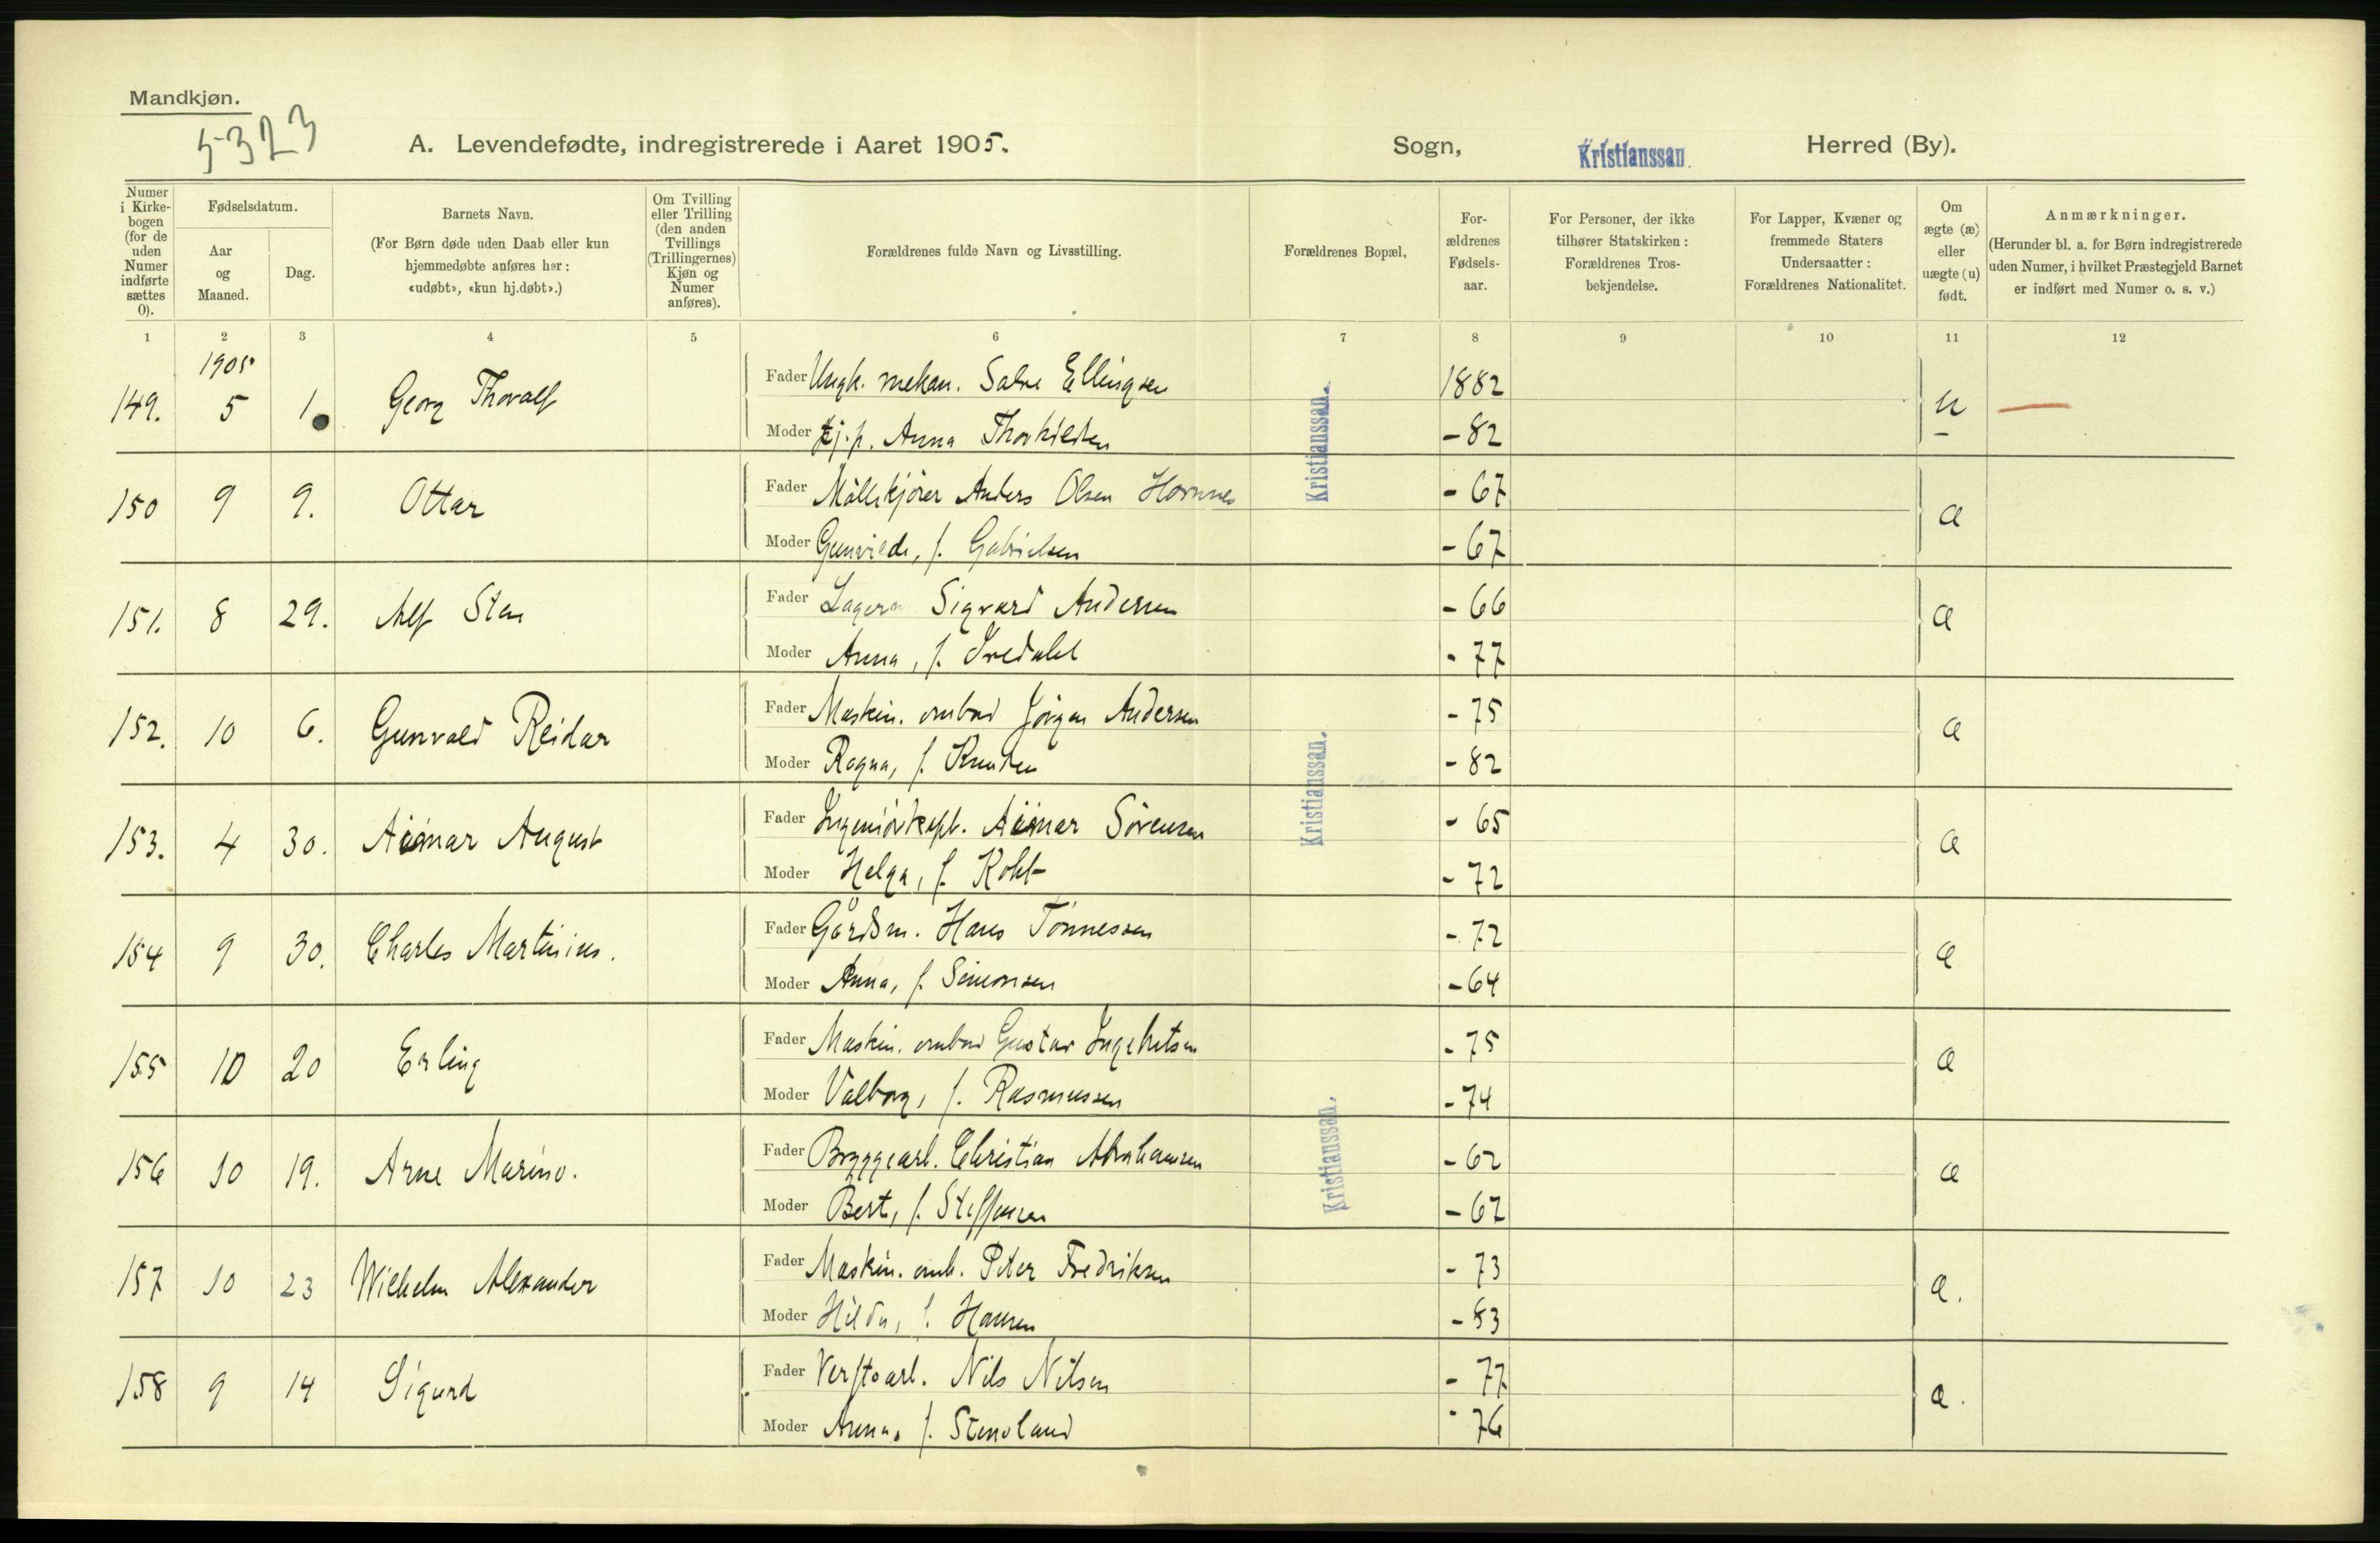 Mandkjøn.
5323
A. Levendefødte, indregistrerede i Aaret 1905. Sogn, Kristianssan. Herred (By).
Numer i Kirkebogen (for de uden Numer indførte sættes 0).
Fødselsdatum.
Aar og Maaned.
Dag.
Barnets Navn.
(For Børn døde uden Daab eller kun
hjemmedøbte anføres her:
«udøbt», «kun hj.døbt».)
Om Tvilling
eller Trilling
(den anden
Tvillings
(Trillingernes)
Kjøn og
Numer
anføres).
Forældrenes fulde Navn og Livsstilling.
Forældrenes Bopæl,
For-
ældrenes
Fødsels-
aar.
For Personer, der ikke
tilhører Statskirken:
Forældrenes Tros-
bekjendelse.
For Lapper, Kvæner og
fremmede Staters
Undersaatter:
Forældrenes Nationalitet.
Om
ægte (æ)
eller
uægte (u)
født.
Anmærkninger.
(Herunder bl. a. for Børn indregistrerede
uden Numer, i hvilket Præstegjeld Barnet
er indført med Numer o. s. v.)
1 2 3 4 5 6 7 8 9 10 11 12
1905
Fader Ungk. mekan. Salve Ellingsen 1882
149. 5 1. Georg Thoralf u
Moder tj.p. Anna Thorkildsen - 82
Kristianssan.
Fader Anders Olsen Hornnes - 67
150 9 9. Ottar æ
Moder Gunvilde, f. Gabrielsen - 67
Fader Sigvard Andersen - 66
151. 8 29. Alf Sten æ
Moder Anna, f. - 77
Fader Maskin. ombud Jörgen Andersen - 75
152. 10 6. Gunvald Reidar æ
Moder Ragna, f. Knudsen - 82
Kristianssan.
Fader Ingeniörkapt. Sørensen - 65
153. 4 30. August æ
Moder Helga, f. - 72
Fader Gårdsm. Hans Tönnessen - 72
154 9 30. Charles Martinius. æ
Moder Anna, f. Simonsen - 64
Fader Maskin. ombud Gustav Ingebretsen - 75
155 10 20 Erling æ
Moder Valborg, f. Rasmussen - 74
Kristianssan.
Fader Bryggearb. Christian Abrahamsen - 62
156 10 19. Arne Marino. æ
Moder Bert, f. Steffensen - 67
Fader Maskin. omb. Peter Fredriksen - 73
157 10 23 Wilhelm Alexander æ.
Moder Hilda, f. Hansen - 83
Fader Verftsarb. Nils Nilsen - 77
158 9 14 Sigurd æ.
Moder Anna, f. Stensland - 76